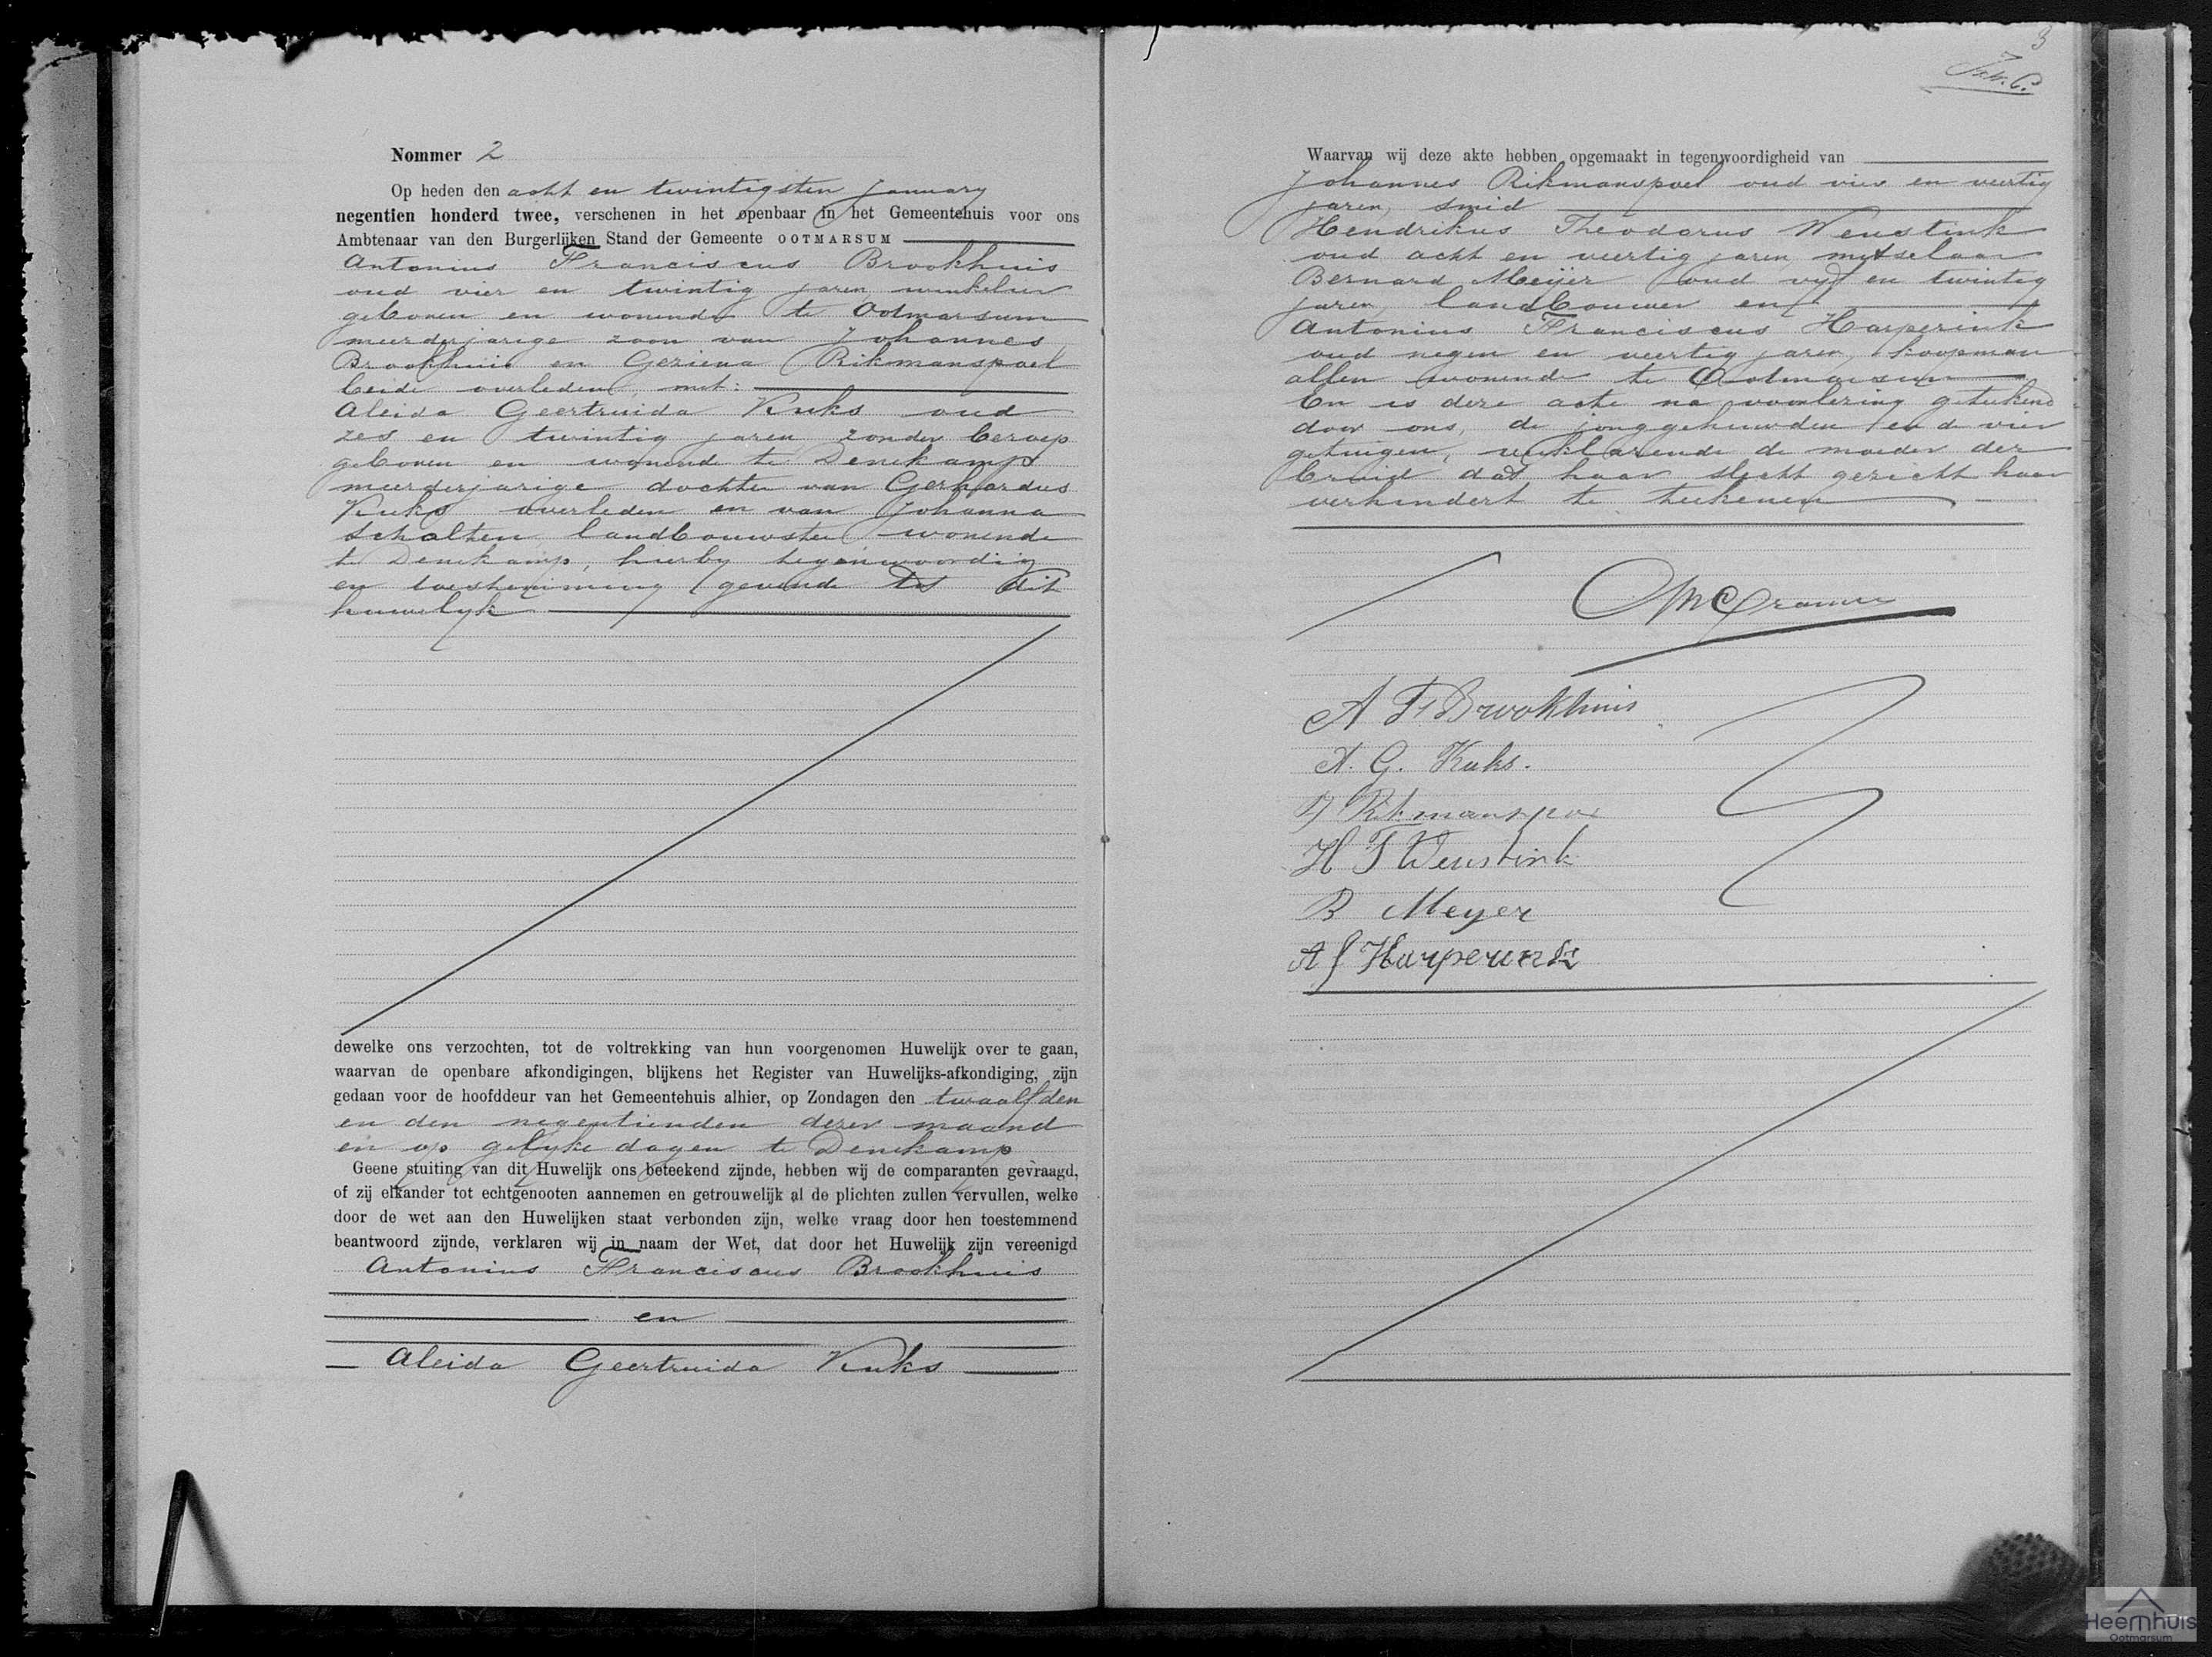 Nommer 2
Op heden den acht en twintigsten January
negentien honderd twee, verschenen in het openbaar in het Gemeentehuis voor ons
Ambtenaar van den Burgerlijken Stand der Gemeente OOTMARSUM
Antonius Franciscus Brookhuis
oud vier en twintig jaren, winkelier
geboren en wonende te Ootmarsum
meerderjarige zoon van Johannes
Brookhuis en Geziena Rikmanspoel
beide overleden, met:
Aleida Geertruida Kuks oud
zes en twintig jaren zonder beroep
geboren en wonende te Denekamp
meerderjarige dochter van Gerhardus
Kuks overleden en van Johanna
Scholten landbouwster wonende
te Denekamp, hierby tegenwoordig
en toestemming gevende tot dit
huwelyk
dewelke ons verzochten, tot de voltrekking van hun voorgenomen Huwelijk over te gaan,
waarvan de openbare afkondigingen, blijkens het Register van Huwelijks-afkondiging, zijn
gedaan voor de hoofddeur van het Gemeentehuis alhier, op Zondagen den twaalfden
en den negentienden dezer maand
en op gelyke dagen te Denekamp
Geene stuiting van dit Huwelijk ons beteekend zijnde, hebben wij de comparanten gevraagd,
of zij elkander tot echtgenooten aannemen en getrouwelijk al de plichten zullen vervullen, welke
door de wet aan den Huwelijken staat verbonden zijn, welke vraag door hen toestemmend
beantwoord zijnde, verklaren wij in naam der Wet, dat door het Huwelijk zijn vereenigd
Antonius Franciscus Brookhuis
en
Aleida Geertruida Kuks
3
Waarvan wij deze akte hebben opgemaakt in tegenwoordigheid van
Johannes Rikmanspoel oud vier en veertig
jaren, smid
Hendrikus Theodorus Weustink
oud acht en veertig jaren, metselaar
Bernard Meijer oud vyf en twintig
jaren, landbouwer en
Antonius Franciscus Harperink
oud negen en veertig jaren, koopman
allen wonende te Ootmarsum
En is deze acte na voorlezing geteekend
door ons, de jonggehuwden en de vier
getuigen, verklarende de moeder der
bruid dat haar slecht gezicht haar
verhindert te teekenen
A F Brookhuis
A. G. Kuks.
Rikmanspoel
H T Weustink
B Meyer
A f Harperink
Heemhuis
Ootmarsum